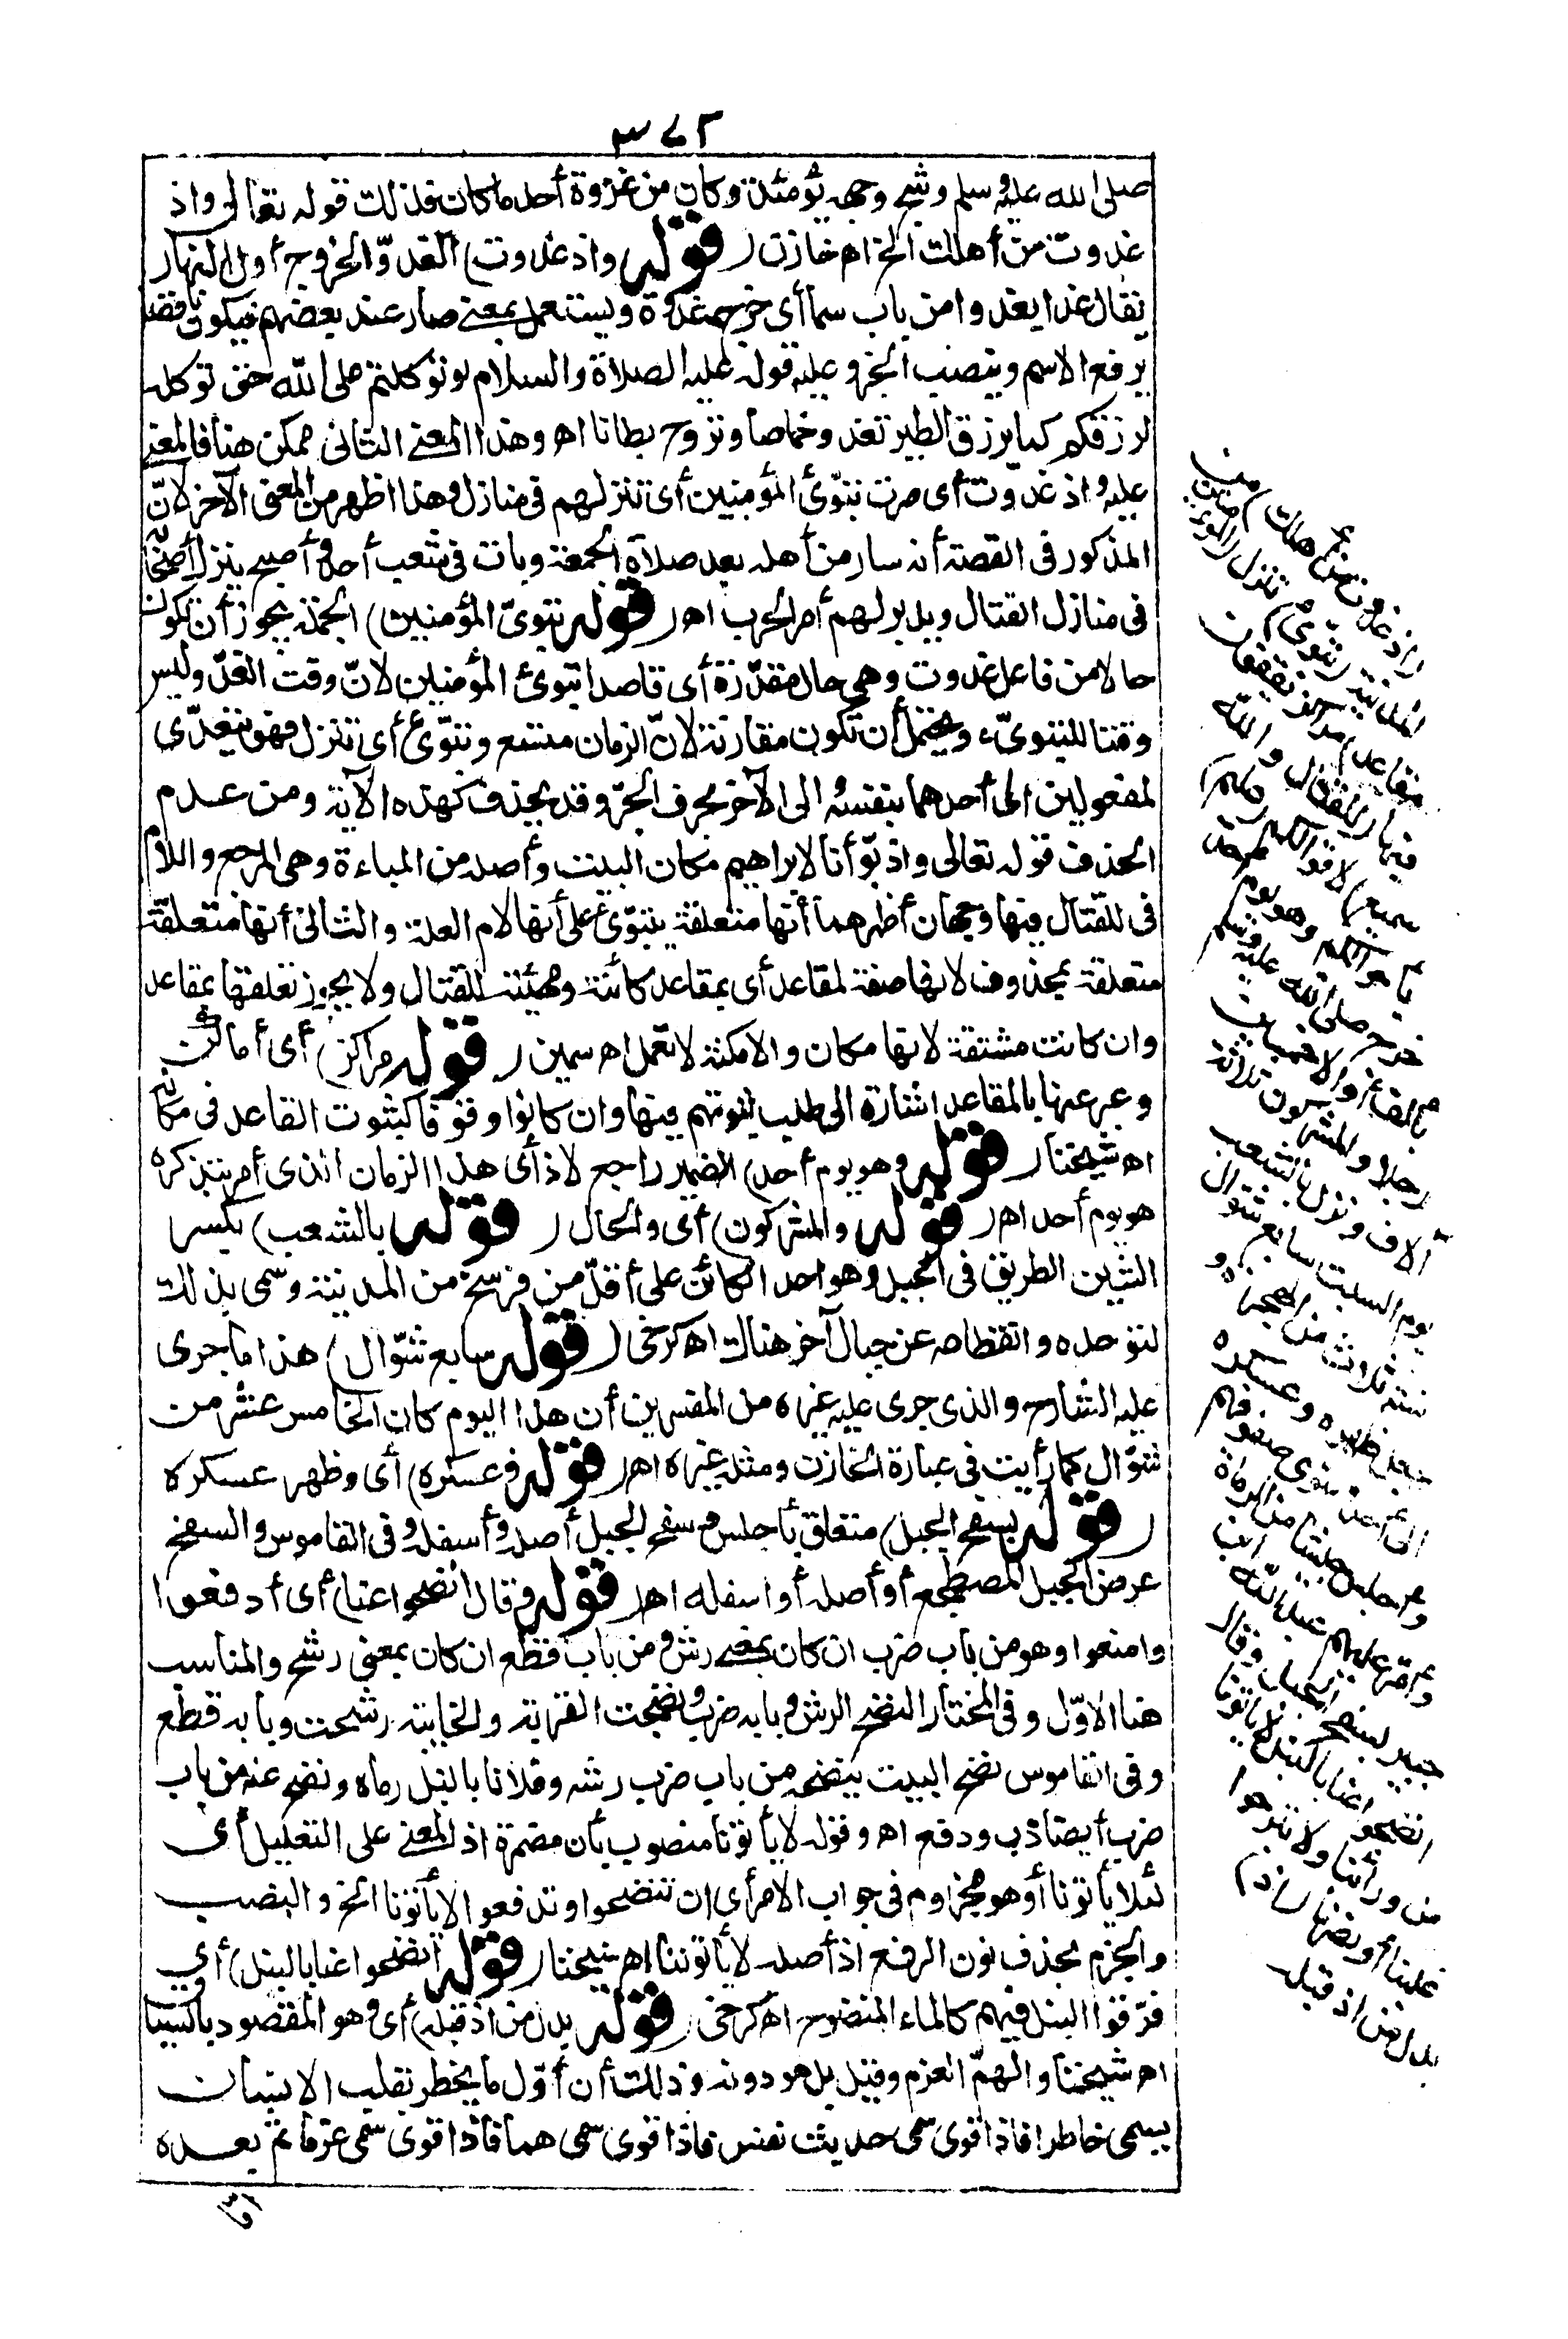 ٣٧٢
صلى الله عليه وسلم وشج وجهه يومئذ وكان من غزوة أحد ما كان فذلك قوله تعالى واذ
غدوت من أهلك الخ اه خازن (قوله واذ غدوت) الغدوّ الخروج أول النهار
يقال غدا يغدو من باب سما أى خرج غدوة ويستعمل بمعنى صار عند بعضهم فيكون ناقصا
يرفع الاسم وينصب الخبر وعليه قوله عليه الصلاة والسلام لو توكلتم على الله حق توكله
لرزقكم كما يرزق الطير تغدو خماصا وتروح بطانا اه وهذا المعنى الثانى ممكن هنا فالمعنى
عليه واذ غدوت أى صرت تبوّئ المؤمنين أى تنزلهم فى منازل وهذا اظهر من المعنى الآخر لانّ
المذكور فى القصة أنه سار من أهله بعد صلاة الجمعة وبات فى شعب أحد وأصبح ينزل أصحابه
فى منازل القتال ويدبر لهم أمر الحرب اه (قوله تبوئ المؤمنين) الجملة يجوز أن تكون
حالا من فاعل غدوت وهى حال مقدّرة أى قاصدا تبوئ المؤمنين لانّ وقت الغدّ وليس
وقتا للتبوىء ويحتمل أن تكون مقارنة لانّ الزمان متسع وتبوّئ أى تنزل فهو يتعدّى
لمفعولين الى أحدهما بنفسه والى الآخر بحرف الجرّ وقد يحذف كهذه الآية ومن عدم
الحذف قوله تعالى واذ بوّأنا لابراهيم مكان البيت وأصله من المباءة وهى المرجع واللام
فى للقتال فيها وجهان أظهرهما أنها متعلقة بتبوّئ على أنها لام العلة والثانى أنها متعلقة
متعلقة بمحذوف لانها صفة لمقاعد أى بمقاعد كائنة ومهيئة للقتال ولا يجوز تعلقها بمقاعد
وان كانت مشتقة لانها مكان والامكنة لا تعمل اه سمين (قوله مراكز) أى أماكن
وعبر عنها بالمقاعد اشارة الى طلب ثبوتهم فيها وان كانوا وقوفا كثبوت القاعد فى مكانه
اه شيخنا (قوله وهو يوم أحد) الضمير راجع لاذ أى هذا الزمان الذى أمر بتذكره
هو يوم أحد اه (قوله والمشركون) أى والحال (قوله بالشعب) بكسر
الشين الطريق فى الجبل وهو احد الكائن على أقلّ من فرسخ من المدينة وسمى بذلك
لتوحده وانقطاعه عن جبال آخر هناك اه كرخى (قوله سابع شوّال) هذا ما جرى
عليه الشارح والذى جرى عليه غيره من المفسرين أن هذا اليوم كان الخامس عشر من
شوّال كما رأيت فى عبارة الخازن ومثله غيره اه (قوله وعسكره) أى وظهر عسكره
(قوله بسفح الجبل) متعلق بأجلس وسفح الجبل أصله وأسفله وفى القاموس والسفح
عرض الجبل المضطجع أو أصله أو اسفله اه (قوله وقال انضحوا عنا) أى أدفعوا
وامنعوا وهو من باب ضرب ان كان بمعنى رش ومن باب قطع ان كان بمعنى رشح والمناسب
هنا الاوّل وفى المختار النضح الرش وبابه ضرب ونضحت القربة والخابية رشحت وبابه قطع
وفى القاموس نضح البيت ينضحه من باب ضرب رشه وفلانا بالنبل رماه ونضح عنه من باب
ضرب أيضا ذب ودفع اه وقوله لا يأتونا منصوب بأن مضمرة اذ المعنى على التعليل أى
لئلا يأتونا أو هو مجزوم فى جواب الامر أى ان تنضحوا وتدفعوا لا يأتونا الخ والنصب
والجزم بحذف نون الرفع اذ أصله لا يأتوننا اه شيخنا (قوله انضحوا عنا بالنبل) أى
فرّقوا النبل فيهم كالماء المنضوح اه كرخى (قوله بدل من اذ قبله) أى وهو المقصود بالسياق
اه شيخنا والهمّ العزم وقيل بل هو دونه وذلك أن أوّل ما يخطر بقلب الانسان
يسمى خاطرا فاذا قوى سمى حديث نفس فاذا قوى سمى هما فاذا قوى سمى عزما ثم بعده
(و) اذكر يا محمد (اذ غدوت من أهلك) من
المدينة (تبوئ) تنزل (المؤمنين
مقاعد) مراكز يقفون
فيها (للقتال والله
سميع) لاقوالكم (عليم)
باحوالكم وهو يوم أحد
خرج صلى الله عليه وسلم
بألف أو الا خمسين
رجلا والمشركون ثلاثة
آلاف ونزل بالشعب
يوم السبت سابع شوال
سنة ثلاث من الهجرة و
جعل ظهره وعسكره
الى أحد وسوى صفوفهم
وأجلس جيشا من الرماة
وأمّر عليهم عبد الله ابن
جبير بسفح الجبل وقال
انضحوا عنا بالنبل لا يأتونا
من ورائنا ولا تبرحوا
غلبنا أو نصرنا (اذ)
بدل من اذ قبله